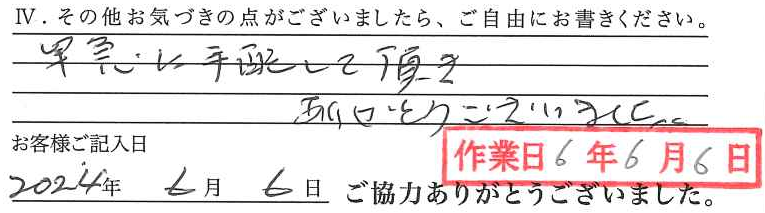 Ⅳ．その他お気づきの点がございましたら、ご自由にお書きください。
早急に手配して頂き
ありがとうございました。
お客様ご記入日
作業日 6 年 6 月 6 日
2024年 6月 6日 ご協力ありがとうございました。